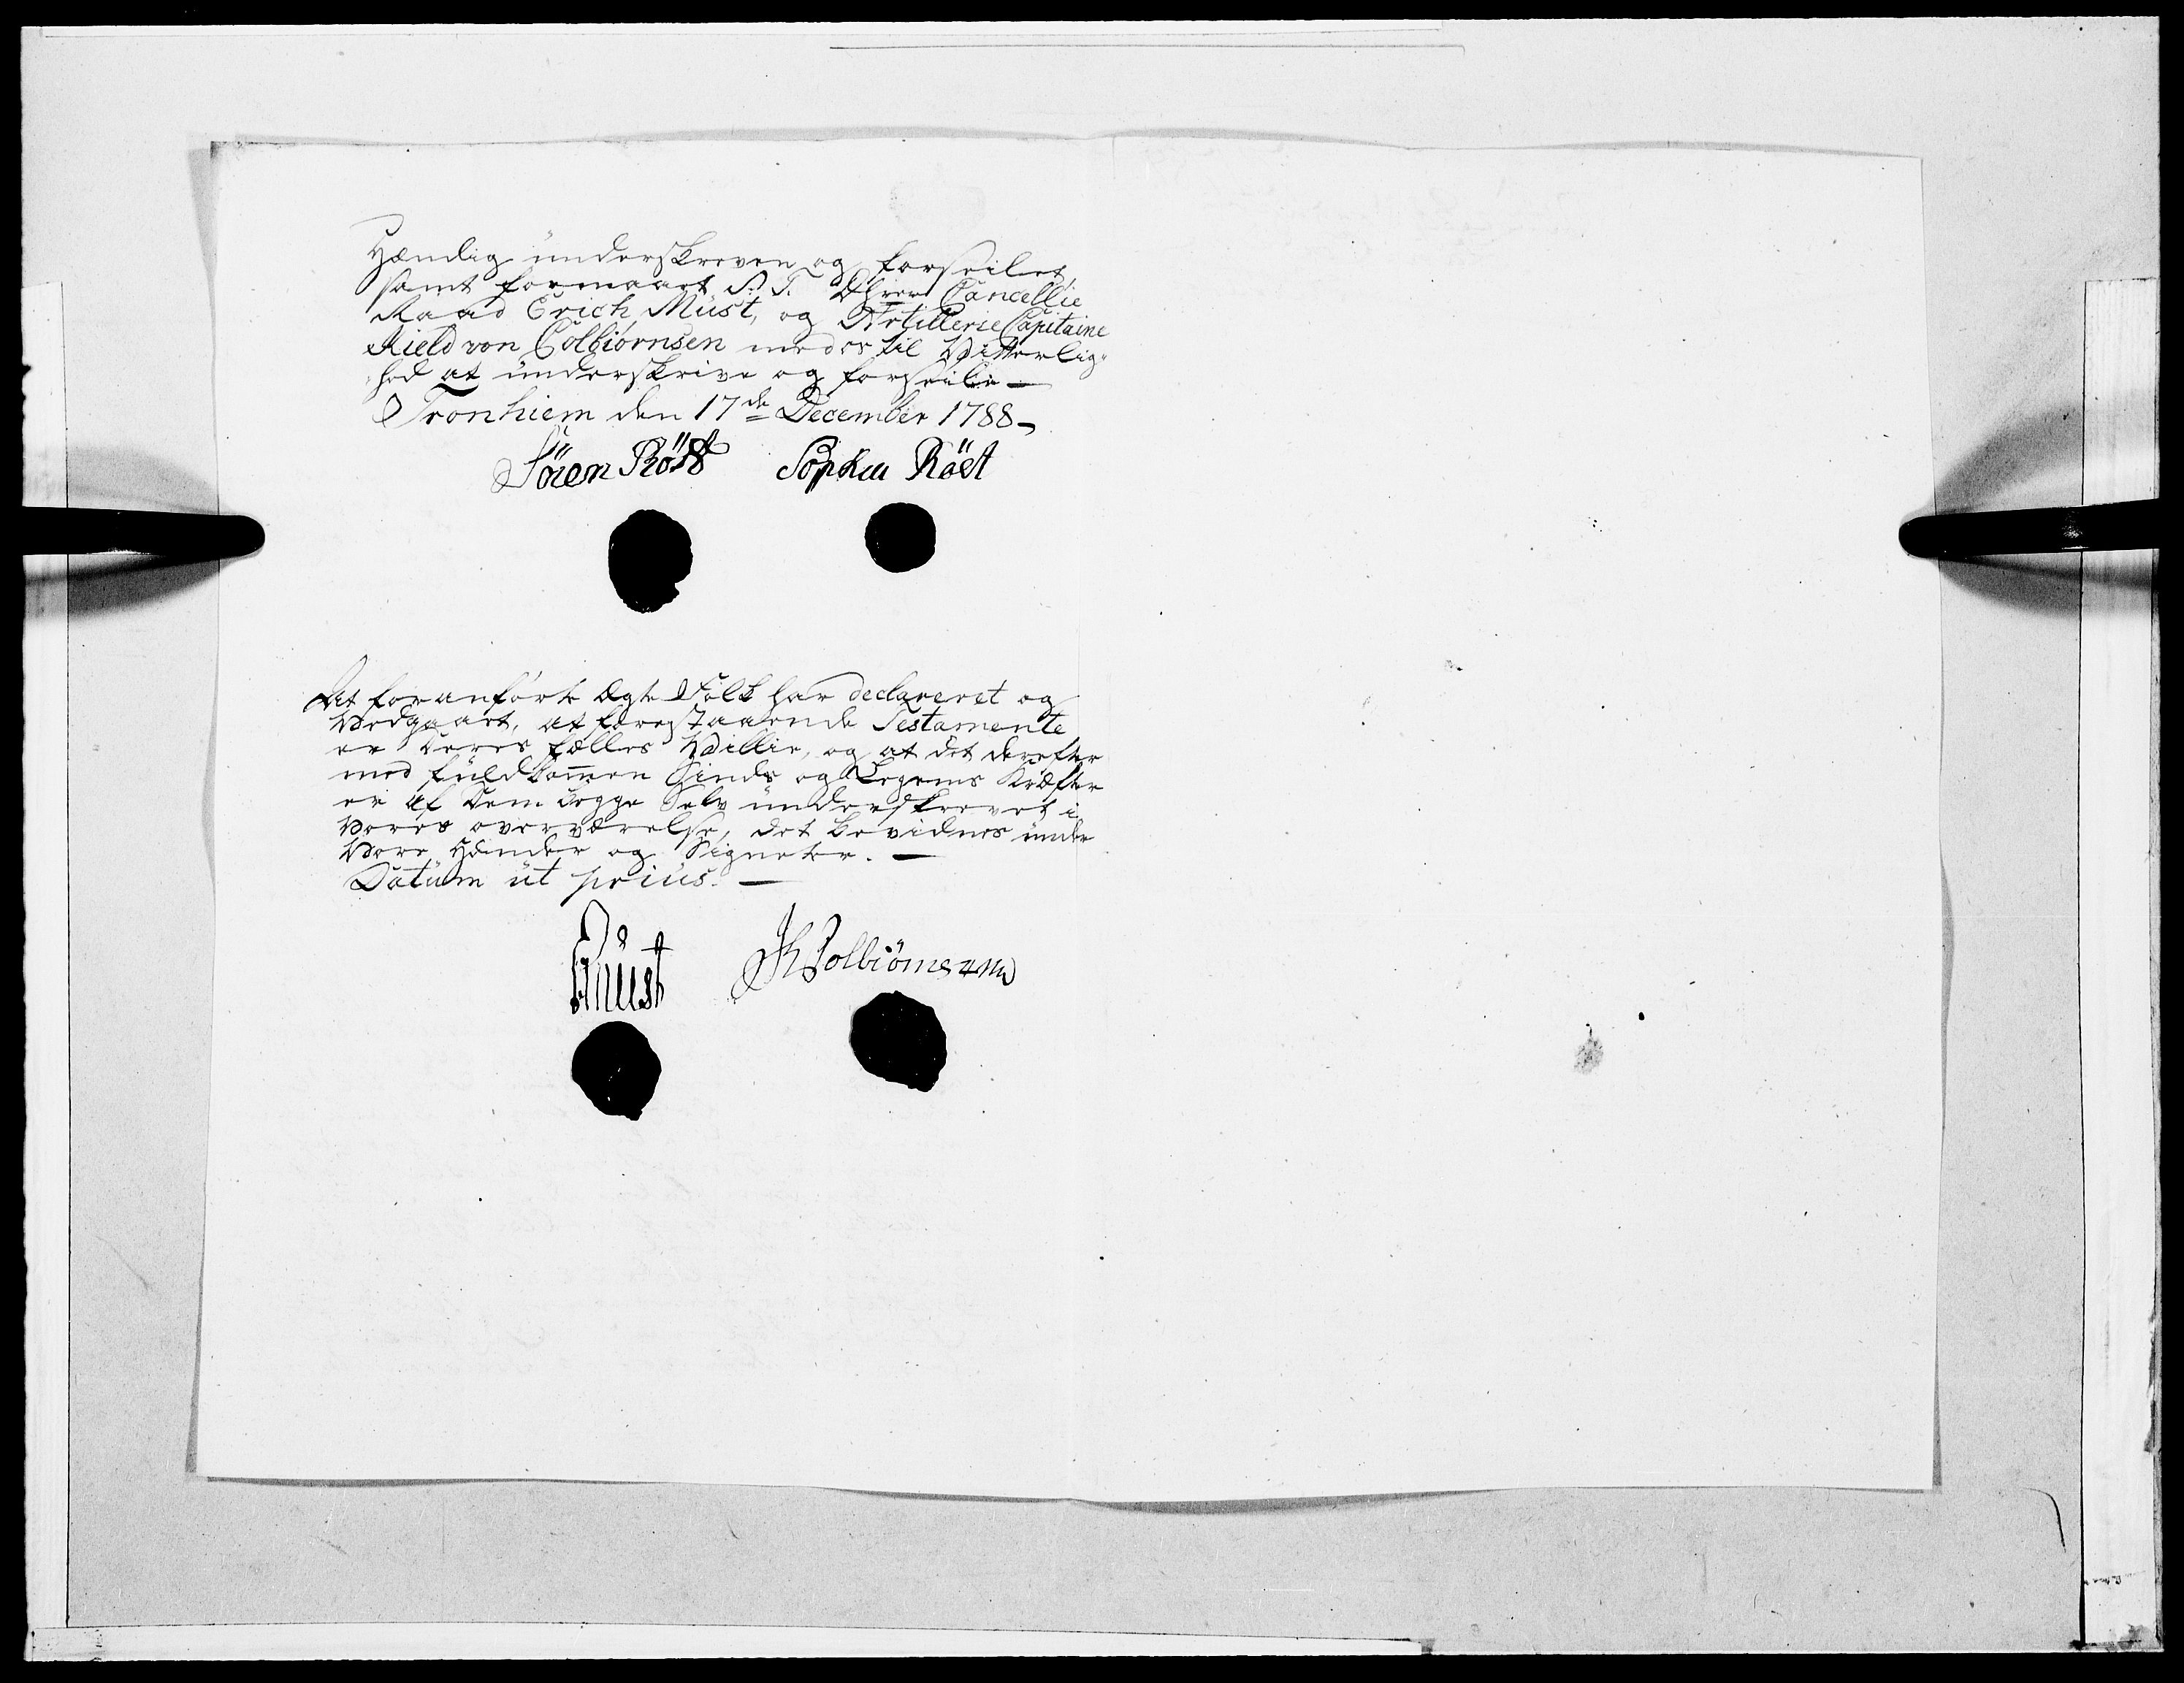 Hændlig underskreven og forseilet,
samt formaaet S: T. Dhrrer Cancellie
Raad Erich Must, og Artillerie Capitaine
Kield von Colbiørnsen medes til Vitterlig-
hed at underskrive og forseile —
Tronhiem den 17de December 1788 —
Sören Röst Sophia Röst
At foranførte Ægte Folk har declareret og
Vedgaaet, at forestaaende Testamente
er deres fælles Villie, og at det derefter
med fuldkommen Sinds og Legems Kræfter
er af Dem begge Selv underskrevet i
Vores overværelse, det bevidnes under
Vore Hænder og Signeter. —
Datum ut prius. —
EMust K Colbiörnsen